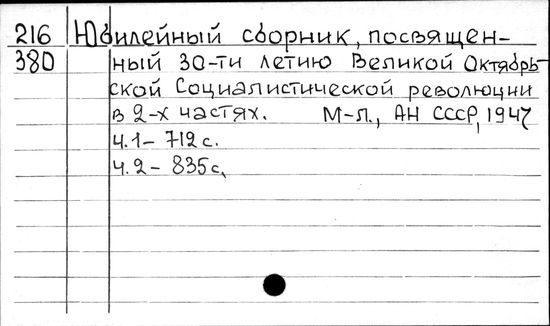 216 Юбилейный сборник, посвящен-
380 ный 30-ти летию Великой Октябрь-
ской Социалистической революции
в 2-х частях. М-Л., АН СССР, 1947
ч.1- 712 с.
ч.2- 835 с.